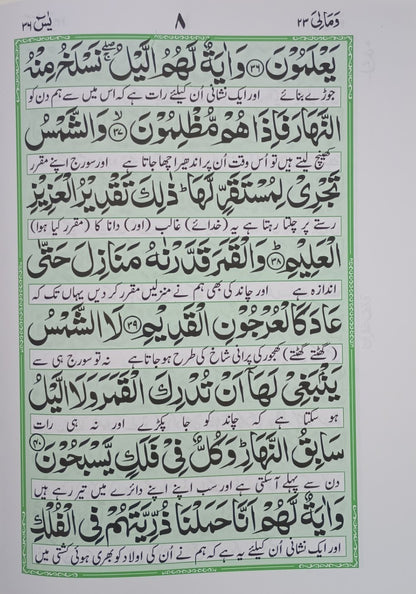 وَمَالِیَ ٢٣ ٨ یٰسٓ ٣٦
یَعْلَمُوْنَ ﴿٣٦﴾ وَاٰیَةٌ لَّهُمُ الَّیْلُ ۖۚ نَسْلَخُ مِنْهُ
جوڑے بنائے اور ایک نشانی اُن کیلئے رات ہے کہ اس میں سے ہم دن کو
النَّهَارَ فَاِذَا هُمْ مُّظْلِمُوْنَ ﴿٣٧﴾ۙ وَالشَّمْسُ
کھینچ لیتے ہیں تو اُس وقت اُن پر اندھیرا چھا جاتا ہے اور سورج اپنے مقرر
تَجْرِیْ لِمُسْتَقَرٍّ لَّهَا ؕ ذٰلِكَ تَقْدِیْرُ الْعَزِیْزِ
رستے پر چلتا رہتا ہے یہ (خدائے) غالب (اور) دانا کا (مقرر کیا ہوا)
الْعَلِیْمِ ﴿٣٨﴾ؕ وَالْقَمَرَ قَدَّرْنٰهُ مَنَازِلَ حَتّٰی
اندازہ ہے اور چاند کی بھی ہم نے منزلیں مقرر کر دیں یہاں تک کہ
عَادَ كَالْعُرْجُوْنِ الْقَدِیْمِ ﴿٣٩﴾ لَا الشَّمْسُ
(گھٹتے گھٹتے) کھجور کی پرانی شاخ کی طرح ہو جاتا ہے نہ تو سورج ہی سے
یَنْۢبَغِیْ لَهَاۤ اَنْ تُدْرِكَ الْقَمَرَ وَلَا الَّیْلُ
ہو سکتا ہے کہ چاند کو جا پکڑے اور نہ ہی رات
سَابِقُ النَّهَارِ ؕ وَكُلٌّ فِیْ فَلَكٍ یَّسْبَحُوْنَ ﴿٤٠﴾
دن سے پہلے آ سکتی ہے اور سب اپنے اپنے دائرے میں تیر رہے ہیں
وَاٰیَةٌ لَّهُمْ اَنَّا حَمَلْنَا ذُرِّیَّتَهُمْ فِی الْفُلْكِ
اور ایک نشانی اُن کیلئے یہ ہے کہ ہم نے اُن کی اولاد کو بھری ہوئی کشتی میں